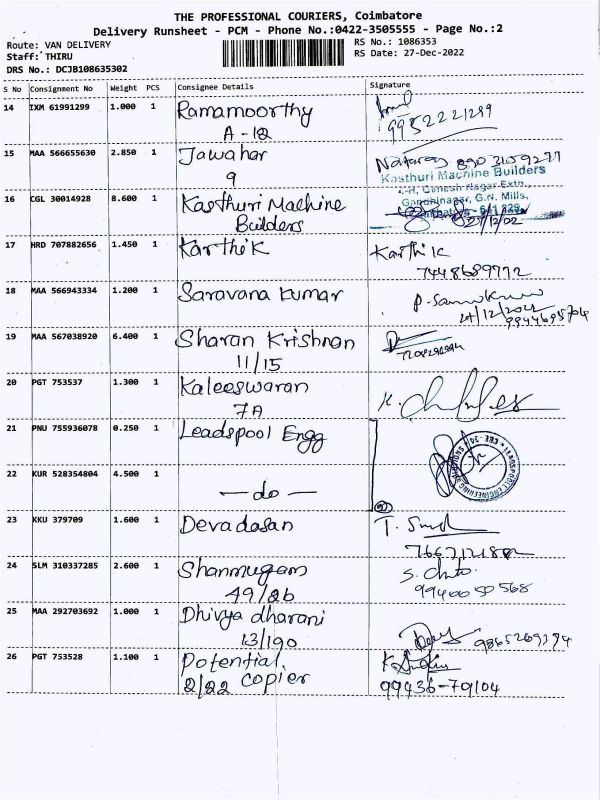 THE PROFESSIONAL COURIERS, Coimbatore
Delivery Runsheet - PCM - Phone No.:0422-3505555 - Page No.:2
Route: VAN DELIVERY
RS No.: 1086353
Staff: THIRU
RS Date: 27-Dec-2022
DRS No.: DCJB108635302
S No Consignment No Weight PCS Consignee Details Signature
14 IXM 61991299 1.000 1 Ramamoorthy
A-12 99522 21289
15 MAA 566655630 2.850 1 Jawahar
9
Kasthuri Machine Builders
16 CGL 30014928 8.600 1 Kasthuri Machine
Builders
Gandhinagar, G.N. Mills,
17 HRD 707882656 1.450 1 Karthik Karthik
7448689772
18 MAA 566943334 1.200 1 Saravana kumar
19 MAA 567038920 6.400 1 Sharan Krishnan
11/15
20 PGT 753537 1.300 1 Kaleeswaran
7A
21 PNU 755936078 0.250 1 Leadspool Engg
22 KUR 528354804 4.500 1
- do -
23 KKU 379709 1.600 1 Devadasan
24 SLM 310337285 2.600 1 Shanmugam
49/26 9940050568
25 MAA 292703692 1.000 1 Dhivya dharani
13/190 9865269394
26 PGT 753528 1.100 1 Potential
2/22 copier 99436-79104